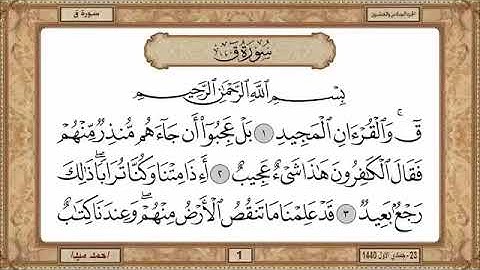 سورة ق
الجزء السادس والعشرون
سُورَةُ ق
بِسْمِ اللَّهِ الرَّحْمَٰنِ الرَّحِيمِ
قٓ ۚ وَالْقُرْءَانِ الْمَجِيدِ ١ بَلْ عَجِبُوٓا۟ أَن جَآءَهُم مُّنذِرٌ مِّنْهُمْ
فَقَالَ الْكَٰفِرُونَ هَٰذَا شَىْءٌ عَجِيبٌ ٢ أَءِذَا مِتْنَا وَكُنَّا تُرَابًا ۖ ذَٰلِكَ
رَجْعٌۢ بَعِيدٌ ٣ قَدْ عَلِمْنَا مَا تَنقُصُ الْأَرْضُ مِنْهُمْ ۖ وَعِندَنَا كِتَٰبٌ
23 - جمادى الأول 1440
1
أحمد ميا